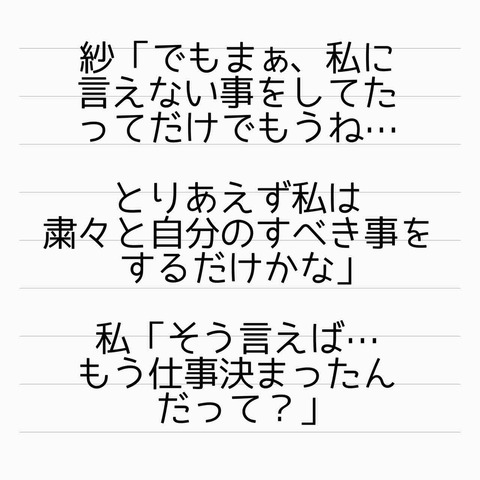 紗「でもまぁ、私に
言えない事をしてた
ってだけでもうね…
とりあえず私は
粛々と自分のすべき事を
するだけかな」
私「そう言えば…
もう仕事決まったん
だって？」